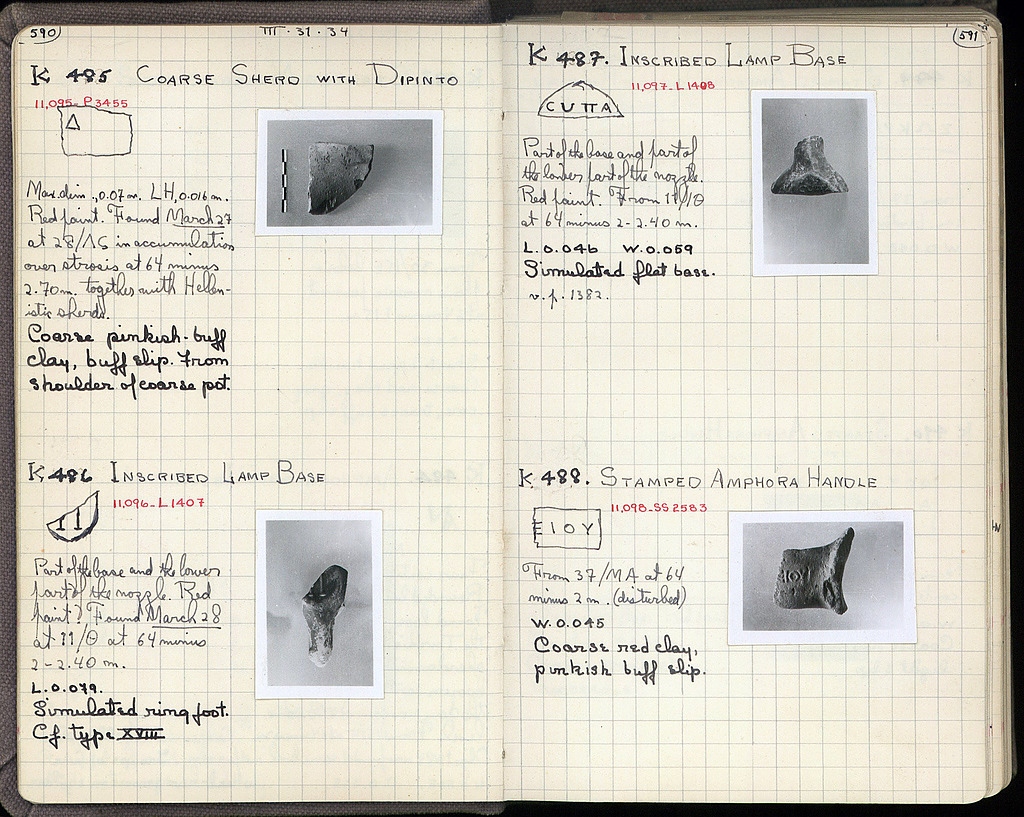 590
III·31·34
K 485 COARSE SHERD WITH DIPINTO
11,095-P3455
Δ
Max. dim., 0.07 m. LH, 0.016 m.
Red paint. Found March 27
at 28/ΛϚ in accumulation
over strosis at 64 minus
2.70 m. together with Hellen-
istic sherds.
Coarse pinkish-buff
clay, buff slip. From
shoulder of coarse pot.
K 486 INSCRIBED LAMP BASE
11,096-L1407
Part of the base and the lower
part of the nozzle. Red
paint? Found March 28
at 11/Θ at 64 minus
2-2.40 m.
L.0.079.
Simulated ring foot.
Cf. type XVIII
591
K 487. INSCRIBED LAMP BASE
11,097-L1408
CUTTA
Part of the base and part of
the lower part of the nozzle.
Red paint. From 11/Θ
at 64 minus 2-2.40 m.
L.0.046 W.0.059
Simulated flat base.
v.p. 1382.
K 488. STAMPED AMPHORA HANDLE
11,098-SS2583
ΕΙΟΥ
From 37/ΜΑ at 64
minus 2 m. (disturbed)
W.0.045
Coarse red clay,
pinkish buff slip.